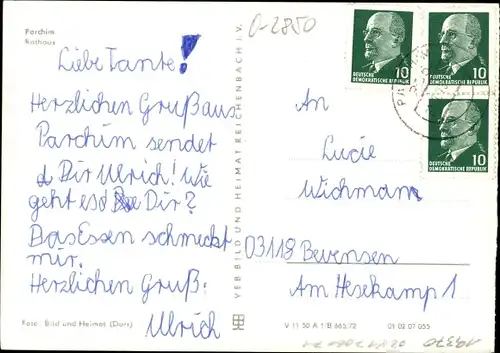 Parchim
Rathaus
O-2850
Liebe Tante!
Herzlichen Gruß aus
Parchim sendet
Dir Ulrich! Wie
geht es Dir?
Das Essen schmeckt
mir.
Herzlichen Gruß.
Ulrich
Foto: Bild und Heimat (Darr)
VEB BILD UND HEIMAT REICHENBACH I. V.
10
DEUTSCHE
DEMOKRATISCHE REPUBLIK
10
DEUTSCHE
DEMOKRATISCHE REPUBLIK
10
DEUTSCHE
DEMOKRATISCHE REPUBLIK
An
Lucie
Wichmann
03118 Bevensen
Am Hesekamp 1
V 11 50 A 1/B 665/72 01 02 07 055
19370